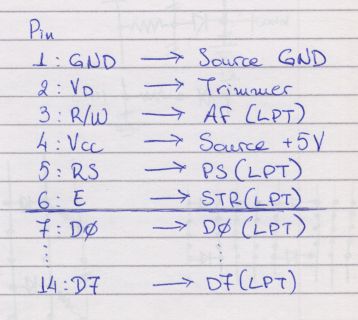 Pin
1: GND → Source GND
2: VD → Trimmer
3: R/W → AF (LPT)
4: Vcc → Source +5V
5: RS → PS (LPT)
6: E → STR (LPT)
7: DØ → DØ (LPT)
⋮ ⋮
14: D7 → D7 (LPT)